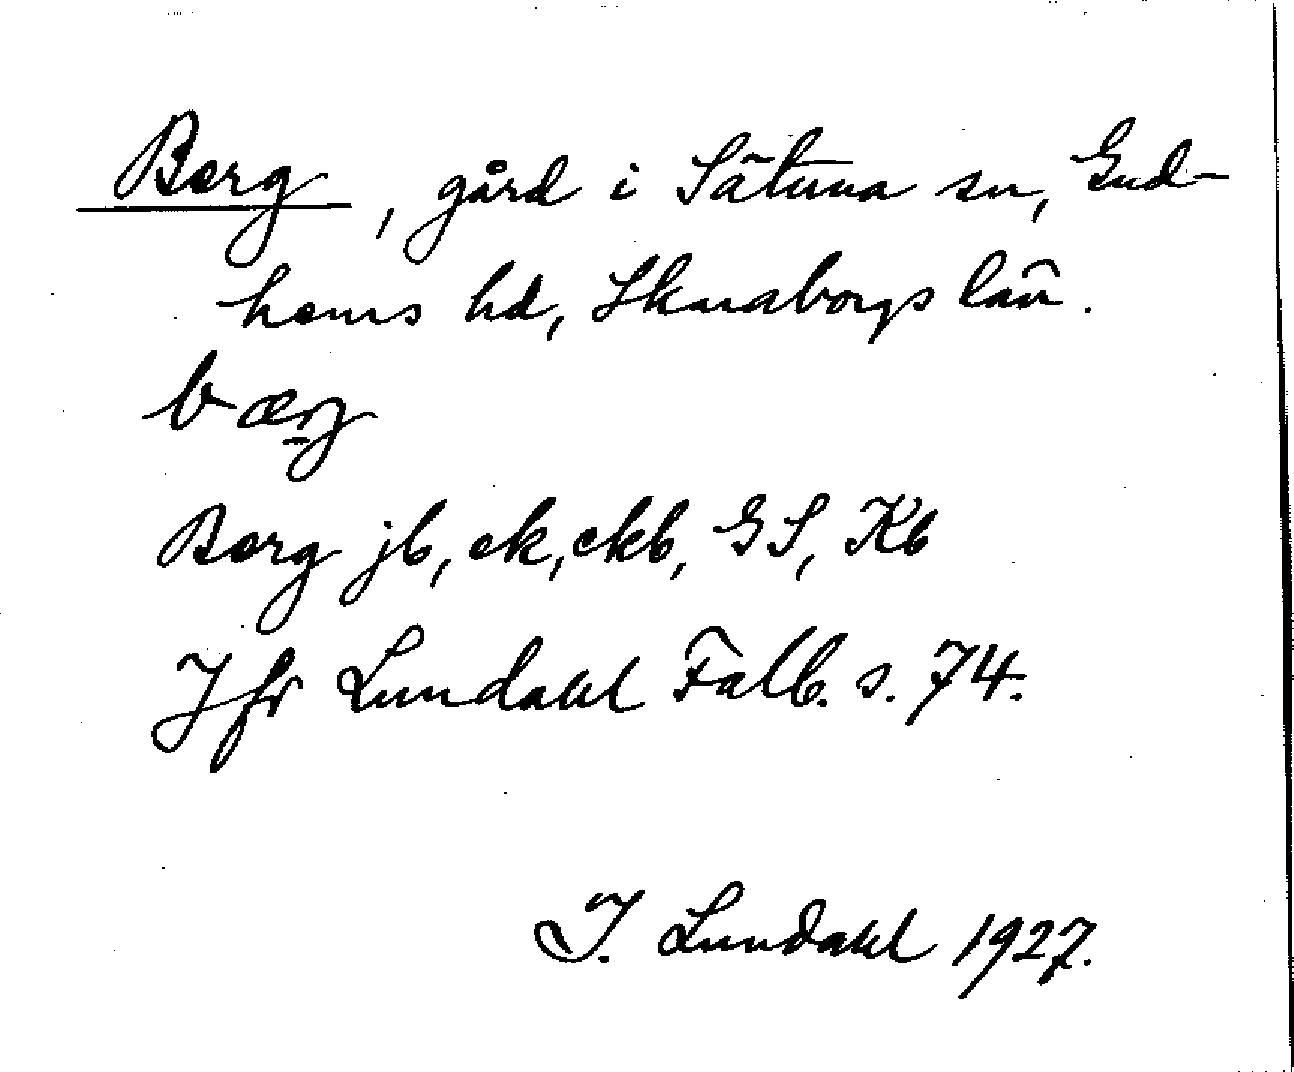 Berg, gård i Sätuna sn, Gud-
hems hd, Skaraborgs län.
bærj
Berg jb, ek, ekb, GS, Kb
Jfr Lundahl Falb. s. 74.
I. Lundahl 1927.